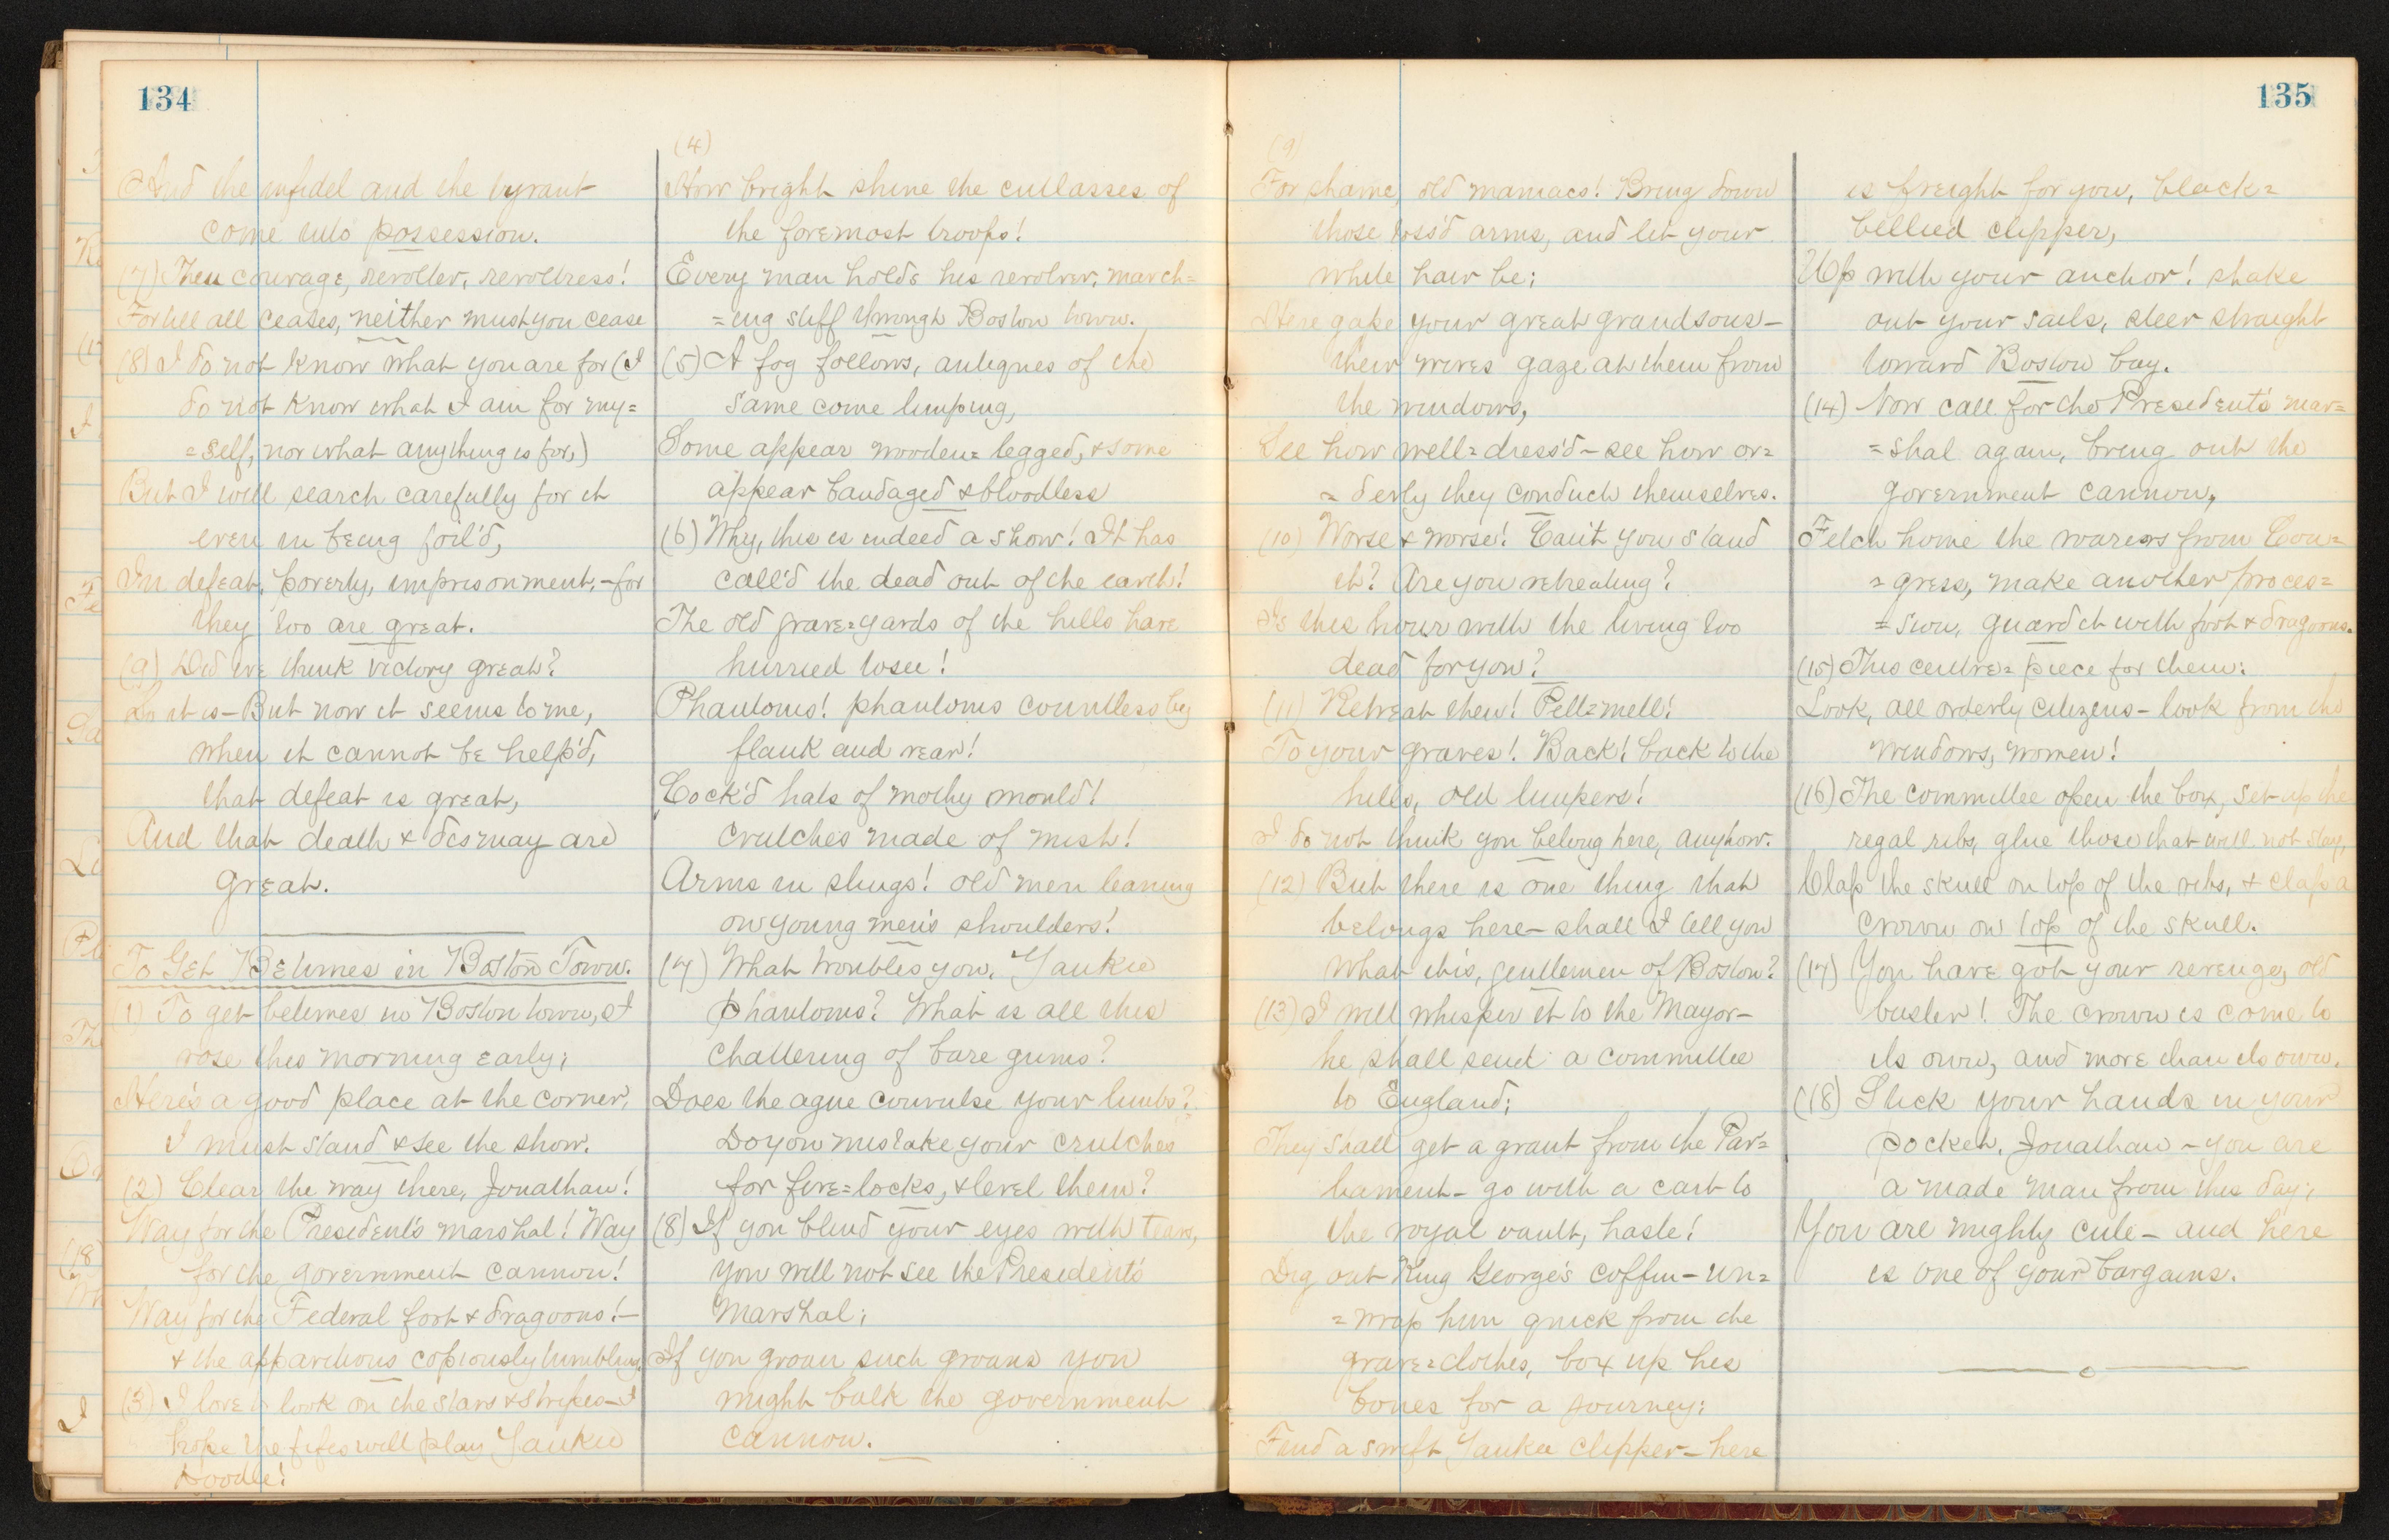 134
And the infidel and the tyrant
come into possession.
(7) Then courage, revolter, revoltress!
For till all ceases, neither must you cease
(8) I do not know what you are for (I
do not know what I am for my=
=self, nor what anything is for,)
But I will search carefully for it
even in being foil'd,
In defeat, poverty, imprisonment,-for
they too are great.
(9) Did we think victory great?
So it is - But now it seems to me,
when it cannot be help'd,
that defeat is great,
And that death & dismay are
great.
To Get Betimes in Boston Town.
(1) To get betimes in Boston town, I
rose this morning early;
Here's a good place at the corner,
I must stand & see the show.
(2) Clear the way there, Jonathan!
Way for the President's marshal! Way
for the government cannon!
Way for the Federal foot & dragoons! -
& the apparitions copiously tumbling.
(3) I love to look on the stars & stripes - I
hope the fifes will play Yankee
Doodle!
(4)
How bright shine the cutlasses of
the foremost troops!
Every man holds his revolver, march=
=ing stiff through Boston town.
(5) A fog follows, antiques of the
same come limping,
Some appear wooden=legged, & some
appear bandaged & bloodless
(6) Why, this is indeed a show! It has
call'd the dead out of the earth!
The old grave=yards of the hills have
hurried to see!
Phantoms! phantoms countless by
flank and rear!
Cock'd hats of mothy mould!
crutches made of mist!
Arms in slings! old men leaning
on young men's shoulders!
(7) What troubles you, Yankee
phantoms? What is all this
chattering of bare gums?
Does the ague convulse your limbs?
Do you mistake your crutches
for fire=locks, & level them?
(8) If you blind your eyes with tears,
you will not see the President's
Marshal;
If you groan such groans you
might balk the government
cannon.
135
(9)
For shame, old maniacs! Bring down
those toss'd arms, and let your
white hair be;
Here gape your great grandsons -
their wives gaze at them from
the windows,
See how well=dress'd - see how or=
=derly they conduct themselves.
(10) Worse & worse! Can't you stand
it? Are you retreating?
Is this hour with the living too
dead for you?
(11) Retreat then! Pell=mell!
To your graves! Back! back to the
hills, old limpers!
I do not think you belong here, anyhow.
(12) But there is one thing that
belongs here - shall I tell you
what it is, gentlemen of Boston?
(13) I will whisper it to the Mayor -
he shall send a committee
to England;
They shall get a grant from the Par=
liament - go with a cart to
the royal vault, haste!
Dig out King George's coffin - un=
=wrap him quick from the
grave=clothes, box up his
bones for a journey;
Find a swift Yankee clipper - here
is freight for you, black=
bellied clipper,
Up with your anchor! shake
out your sails, steer straight
toward Boston bay.
(14) Now call for the President's mar=
=shal again, bring out the
government cannon,
Fetch home the roarers from Con=
=gress, make another proces=
=sion, guard it with foot & dragoons.
(15) This centre=piece for them:
Look, all orderly citizens - look from the
windows, women!
(16) The committee open the box, set up the
regal ribs, glue those that will not stay,
Clap the skull on top of the ribs, & clap a
crown on top of the skull.
(17) You have got your revenge, old
buster! The crown is come to
its own, and more than its own.
(18) Stick your hands in your
pocket, Jonathan - you are
a made man from this day;
You are mighty cute - and here
is one of your bargains.